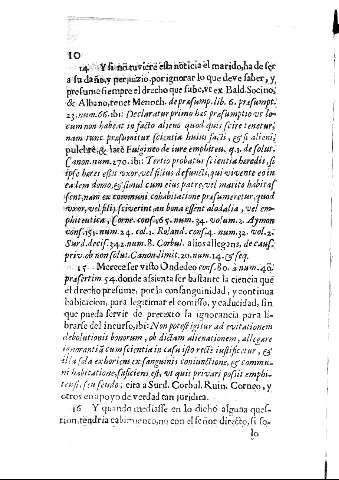 10
14 Y si no tuviere esta noticia el marido, ha de ser
a su daño, y perjuizio. por ignorar lo que deve saber, y,
presume siempre el drecho que sabo, vt ex Bald. Socino,
& Albano, tenet Menoch. de præsumpt. lib. 6. præsumpt.
23. num. 66. ibi: Declaratur primo hæc præsumptio vt lo-
cum non habeat in facto alieno quod quis scire tenetur,
nam tunc præsumitur scientia huius facti, & si alieni;
pulchrè, & latè Eugineo de iure emphiteu. q. 1. de solut.
Canon. num. 270. ibi: Tertio probatur scientia heredis, si
ipse hæres est vxor, vel filius defuncti, qui vivente eo in
eadem domo, & simul cum eius patre, vel marito habitas
sent, nam ex communi cohabitatione præsumeretur, quod
vxor, vel filij, sciverint, an bona essent alodalia, vel em-
phiteutica, Corne. conf. 165. num. 34. volum. 2. Aymon
conf. 151. num. 24. col. 1. Roland. conf. 4. num. 32. vol. 2.
Surd. decis. 242. num. 8. Corbul. alios allegans, de caus.
priv. ob non solut. Canon. limit. 20. num. 14. & seq.
15 Merece ser visto Ondedeo conf. 80. à num. 40.
præsertim 54. donde assienta ser bastante la ciencia que
el drecho presume, por la consanguinidad, y continua
habitacion, para legitimar el comisso, y caducidad, sin
que pueda servir de pretexto la ignorancia para li-
brarse del incurso, ibi: Non potest igitur ad evitationem
debolutionis bonorum, ob dictam alienationem, allegare
ignorantiã cum scientia in casu isto rectè iustificetur, &
illa sola exhorium ex sanguinis coniunctione, & commu-
ni habitatione, sufficiens est, vt quis privari possit emphi-
teusi, seu feudo; cita a Surd. Corbul. Ruin. Corneo, y
otros en apoyo de verdad tan juridica.
16 Y quando mediasse en lo dicho alguna ques-
tion, tendria cabimiento, no con el señor directo, si so-
lo